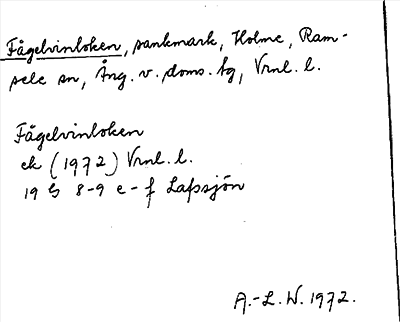 Fågelvinloken, sankmark, Holme, Ram-
sele sn, Ång. v. doms. tg, Vrnl. l.
Fågelvinloken
ek (1972) Vrnl. l.
19 G 8-9 e-f Lafssjön
A.-L. W. 1972.